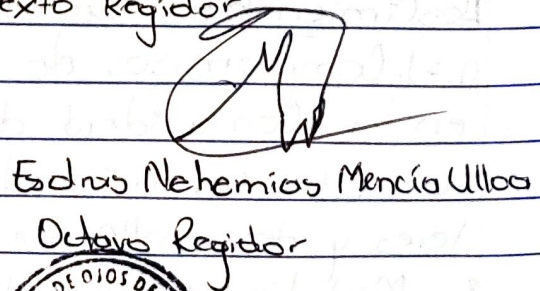 exto Regidor
Esdras Nehemias Mencía Ulloa
Octavo Regidor
DE OJOS DE